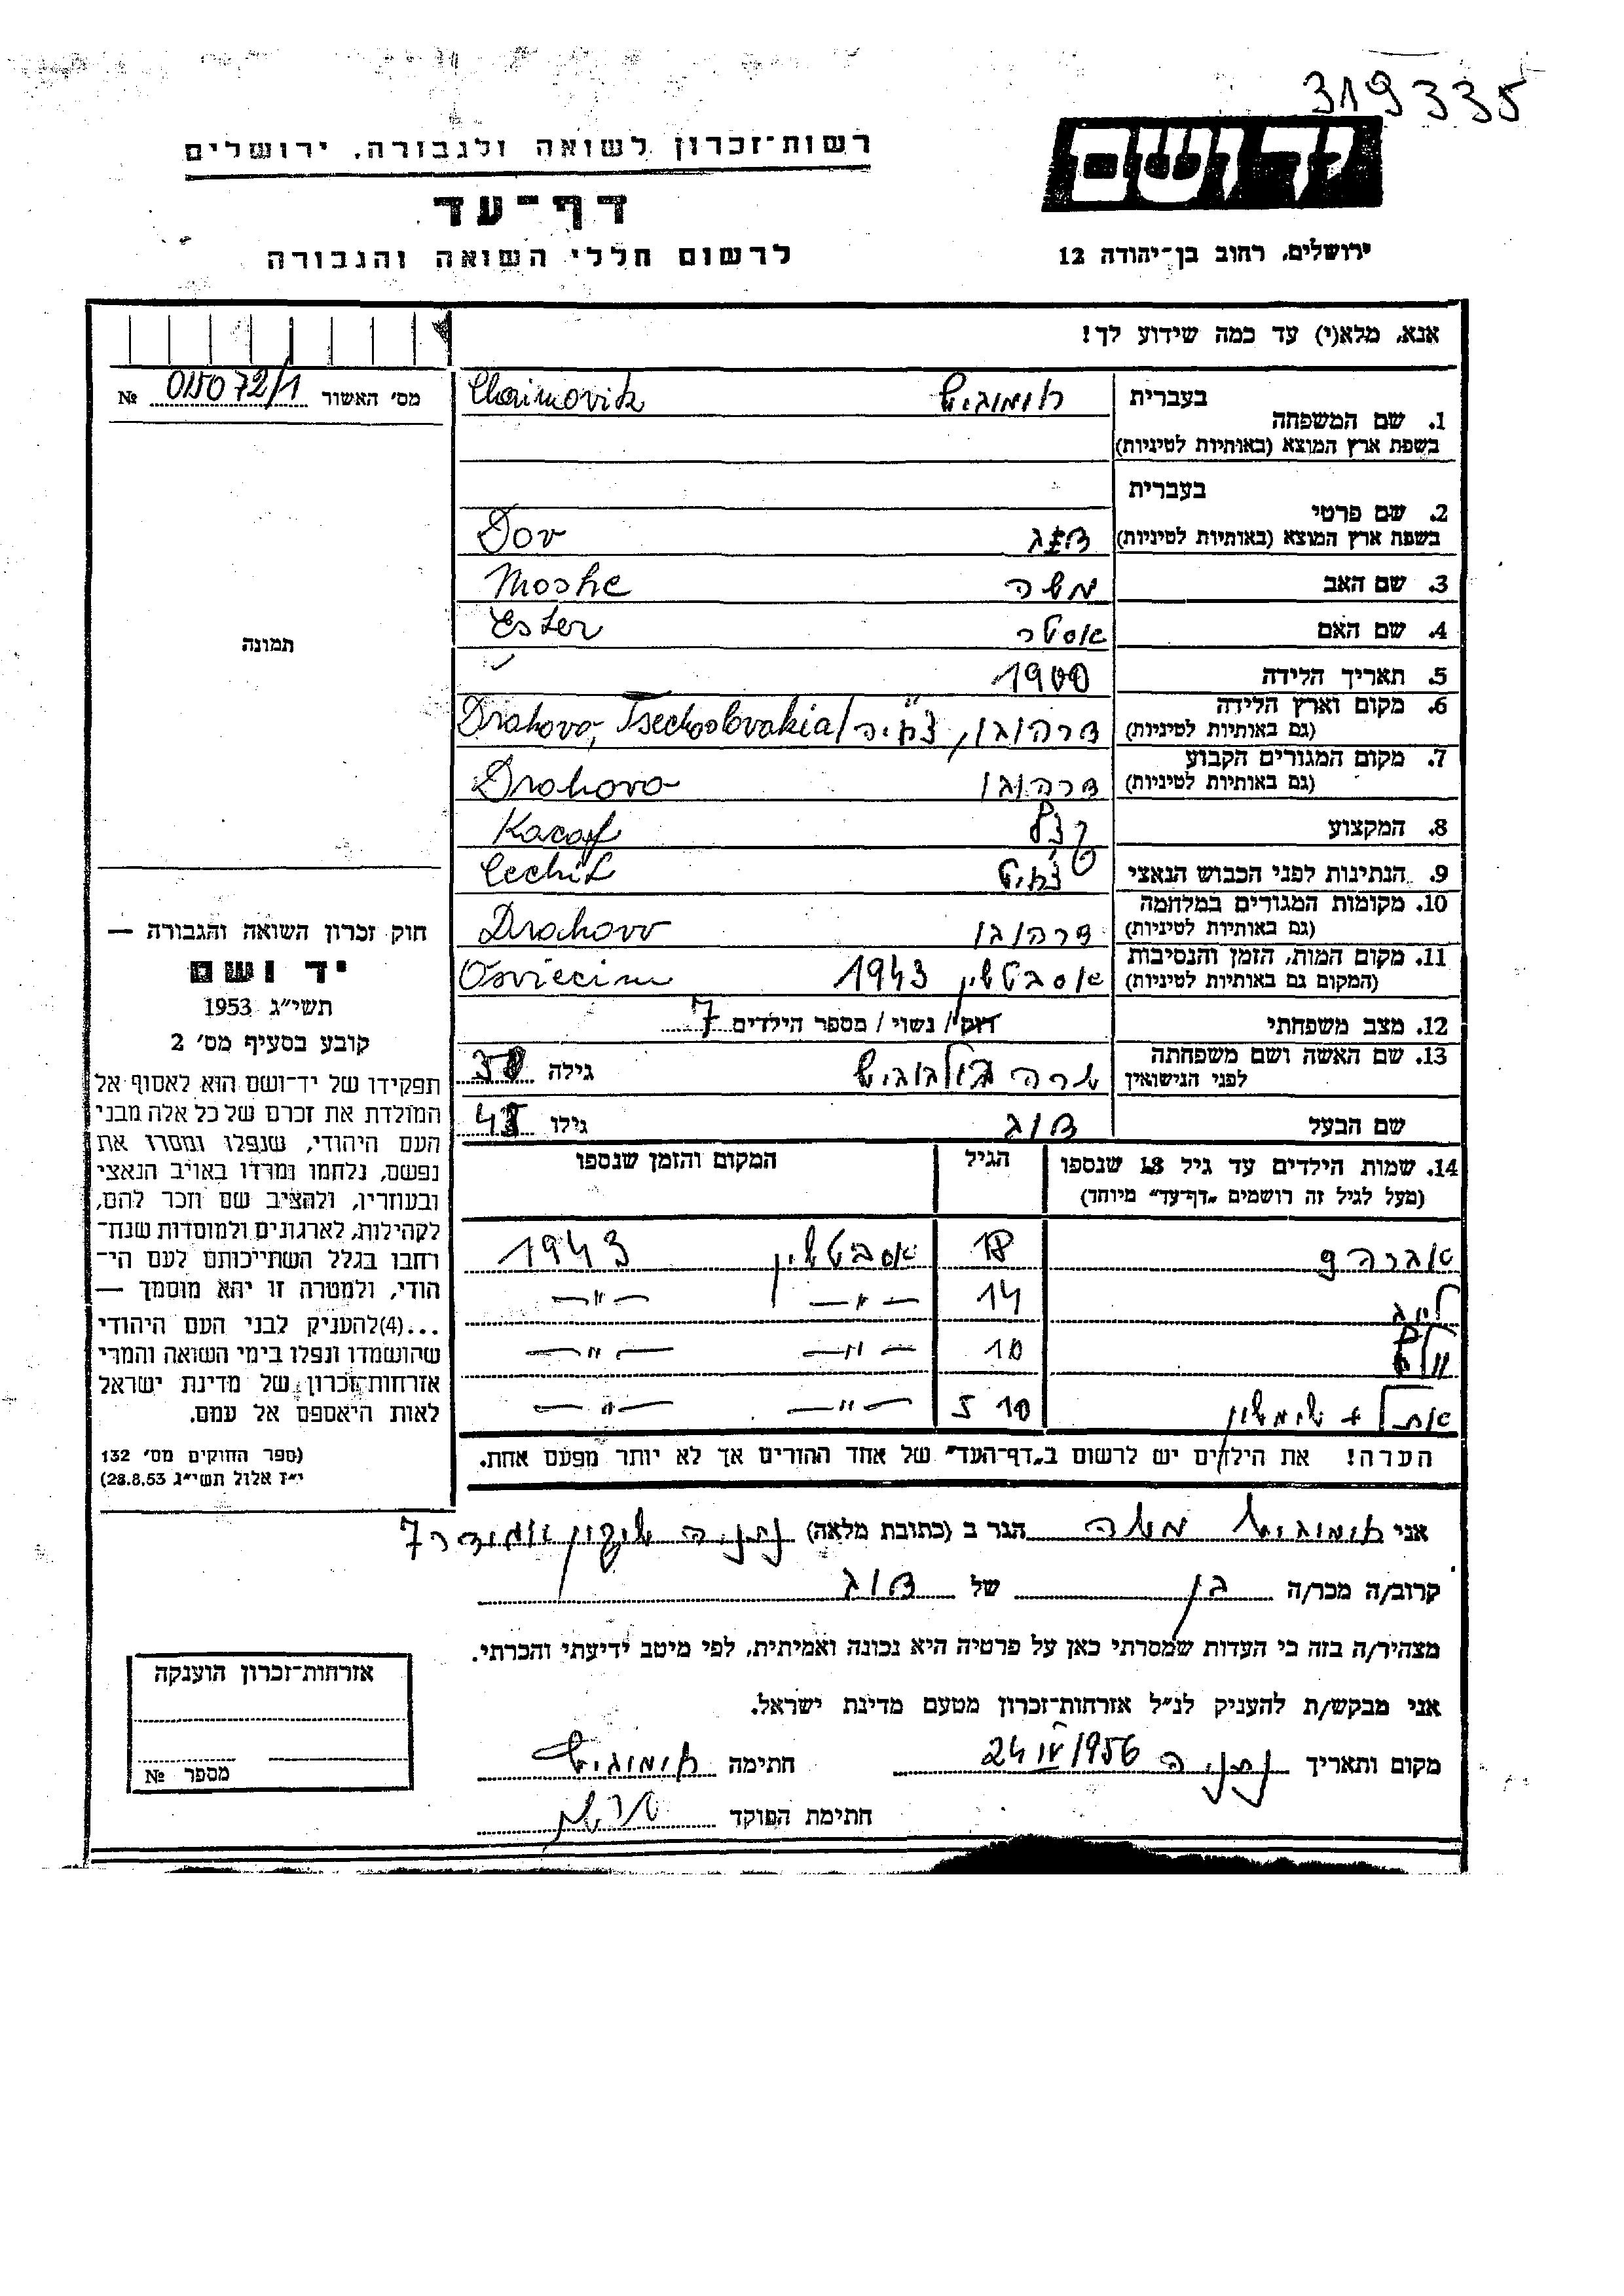 319335
יד ושם
רשות־זכרון לשואה ולגבורה, ירושלים
דף־עד
לרשום חללי השואה והגבורה
ירושלים, רחוב בן־יהודה 12
אנא, מלא(י) עד כמה שידוע לך!
מס' האשור № 015072/1
תמונה
חוק זכרון השואה והגבורה —
יד ושם
תשי״ג 1953
קובע בסעיף מס' 2
תפקידו של יד־ושם הוא לאסוף אל
המולדת את זכרם של כל אלה מבני
העם היהודי, שנפלו ומסרו את
נפשם, נלחמו ומרדו באויב הנאצי
ובעוזריו, ולהציב שם וזכר להם,
לקהילות, לארגונים ולמוסדות שנח־
רבו בגלל השתייכותם לעם הי־
הודי, ולמטרה זו יהא מוסמך —
...(4)להעניק לבני העם היהודי
שהושמדו ונפלו בימי השואה והמרי
אזרחות־זכרון של מדינת ישראל
לאות היאספם אל עמם.
(ספר החוקים מס' 132
י״ז אלול תשי״ג 28.8.53)
בעברית
1. שם המשפחה
בשפת ארץ המוצא (באותיות לטיניות)
Chaimovitz
בעברית
2. שם פרטי
בשפת ארץ המוצא (באותיות לטיניות) Dov
3. שם האב משה Moshe
4. שם האם אסטר Ester
5. תאריך הלידה 1900
6. מקום וארץ הלידה
(גם באותיות לטיניות) דרהובו, צ'כיה / Drahovo, Tsechoslovakia
7. מקום המגורים הקבוע
(גם באותיות לטיניות) דרהובו Drahovo
8. המקצוע קצב
9. הנתינות לפני הכבוש הנאצי צ'כית
10. מקומות המגורים במלחמה
(גם באותיות לטיניות) דרהובו Drahovo
11. מקום המות, הזמן והנסיבות
(המקום גם באותיות לטיניות) 1943 Osviecim
12. מצב משפחתי רווק / נשוי / מספר הילדים 7
13. שם האשה ושם משפחתה
לפני הנישואין שרה גילה
שם הבעל דוב גילו
14. שמות הילדים עד גיל 18 שנספו
(מעל לגיל זה רושמים „דף־עד״ מיוחד)
הגיל
המקום והזמן שנספו
אברהם 18 1943
לייב 14 —״— —״—
10 —״— —״—
+ שימשון 10 5 —״— —״—
הערה! את הילדים יש לרשום ב„דף־העד״ של אחד ההורים אך לא יותר מפעם אחת.
אני חיימוביץ משה הגר ב (כתובת מלאה) נתניה שיכון 7
קרוב/ה מכר/ה בן של דוב
מצהיר/ה בזה כי העדות שמסרתי כאן על פרטיה היא נכונה ואמיתית, לפי מיטב ידיעתי והכרתי.
אני מבקש/ת להעניק לנ״ל אזרחות־זכרון מטעם מדינת ישראל.
מקום ותאריך נתניה 24 IV 1956 חתימה חיימוביץ
חתימת הפוקד
אזרחות־זכרון הוענקה
מספר №